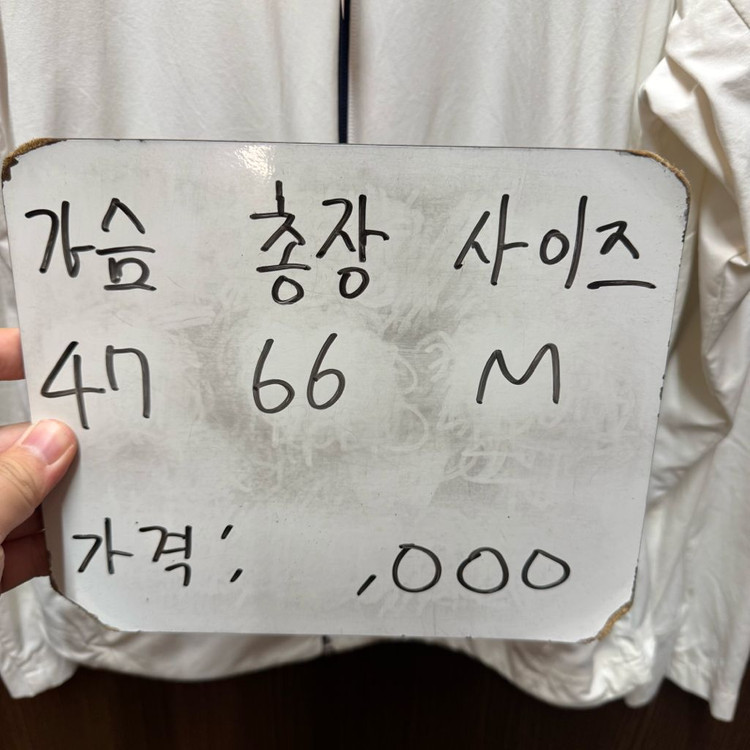 가슴 총장 사이즈
47 66 M
가격: ,000